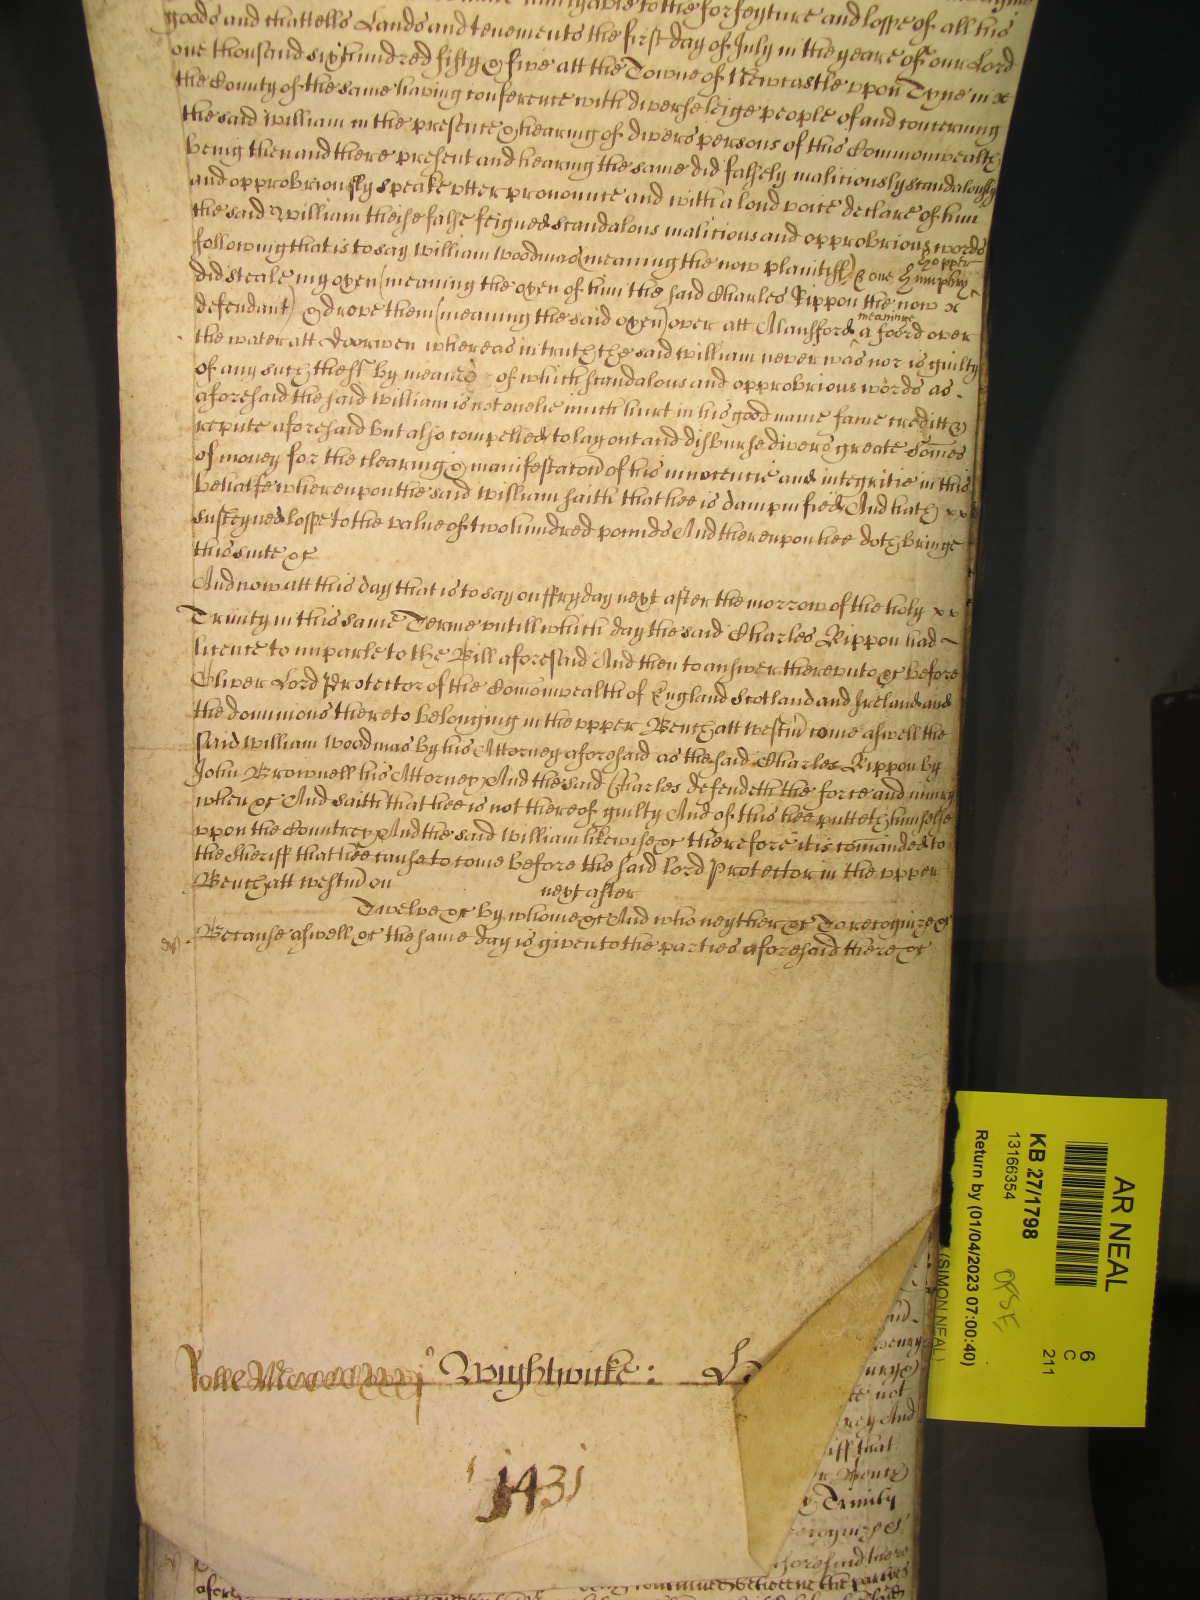 goods and chattells Lands and tenements the first day of July in the yeare of our Lord
one thousand six hundred fifty & five att the Towne of Newcastle vpon Tyne in x
the County of the same having conference with diverse leige people of and concerning
the said William in the presence & hearing of divers persons of this Commonwealth
being then and there present and hearing the same did falsely maliciously scandalously
and opprobriously speake vtter pronounce and with a loud voice declare of him
the said William theise false feigned scandalous malicious and opprobrious words
following that is to say William Woodmas (meaning the now plaintiff) & one Humphry
Hopper
did steale my oxen (meaning the oxen of him the said Charles Rippon the now x
defendant) & drove them (meaning the said oxen) over att Alansford meaninge a foord over
the water att Doorwen whereas in truth the said William never was nor is guilty
of any such theft By meanes of which scandalous and opprobrious words as
aforesaid the said William is not onelie much hurt in his good name fame creditt &
repute aforesaid but also compelled to lay out and disburse divers greate somes
of money for the clearing & manifestacon of his innocencie and integritie in this
behalfe wherevpon the said William saith that hee is dampnified And hath xx
susteyned losse to the value of two hundred pounds And therevpon hee doth bringe
this suite &c
And now att this day that is to say on ffryday next after the morrow of the holy xx
Trinity in this same Terme vntill which day the said Charles Rippon had
licence to imparle to the Bill aforesaid And then to answer therevnto &c before
Oliver Lord Protector of the Comonwealth of England Scotland and Ireland and
the dominions thereto belonging in the vpper Bench att Westm come aswell the
said William Woodmas by his Attorney aforesaid as the said Charles Rippon by
John Brownell his Attorney And the said Charles defendeth the force and iniury
when &c And saith that hee is not thereof guilty And of this hee putteth himselfe
vpon the Countrey And the said William likewise &c therefore it is comanded to
the sheriff that hee cause to come before the said lord Protector in the vpper
Bench att Westm on next after
Twelve &c by whome &c And who neyther &c To recognize &c
Because aswell &c the same day is given to the parties aforesaid there &c
Wightwicke:
1431
AR NEAL
KB 27/1798
13166354
Return by (01/04/2023 07:00:40)
(SIMON NEAL)
6
C
211